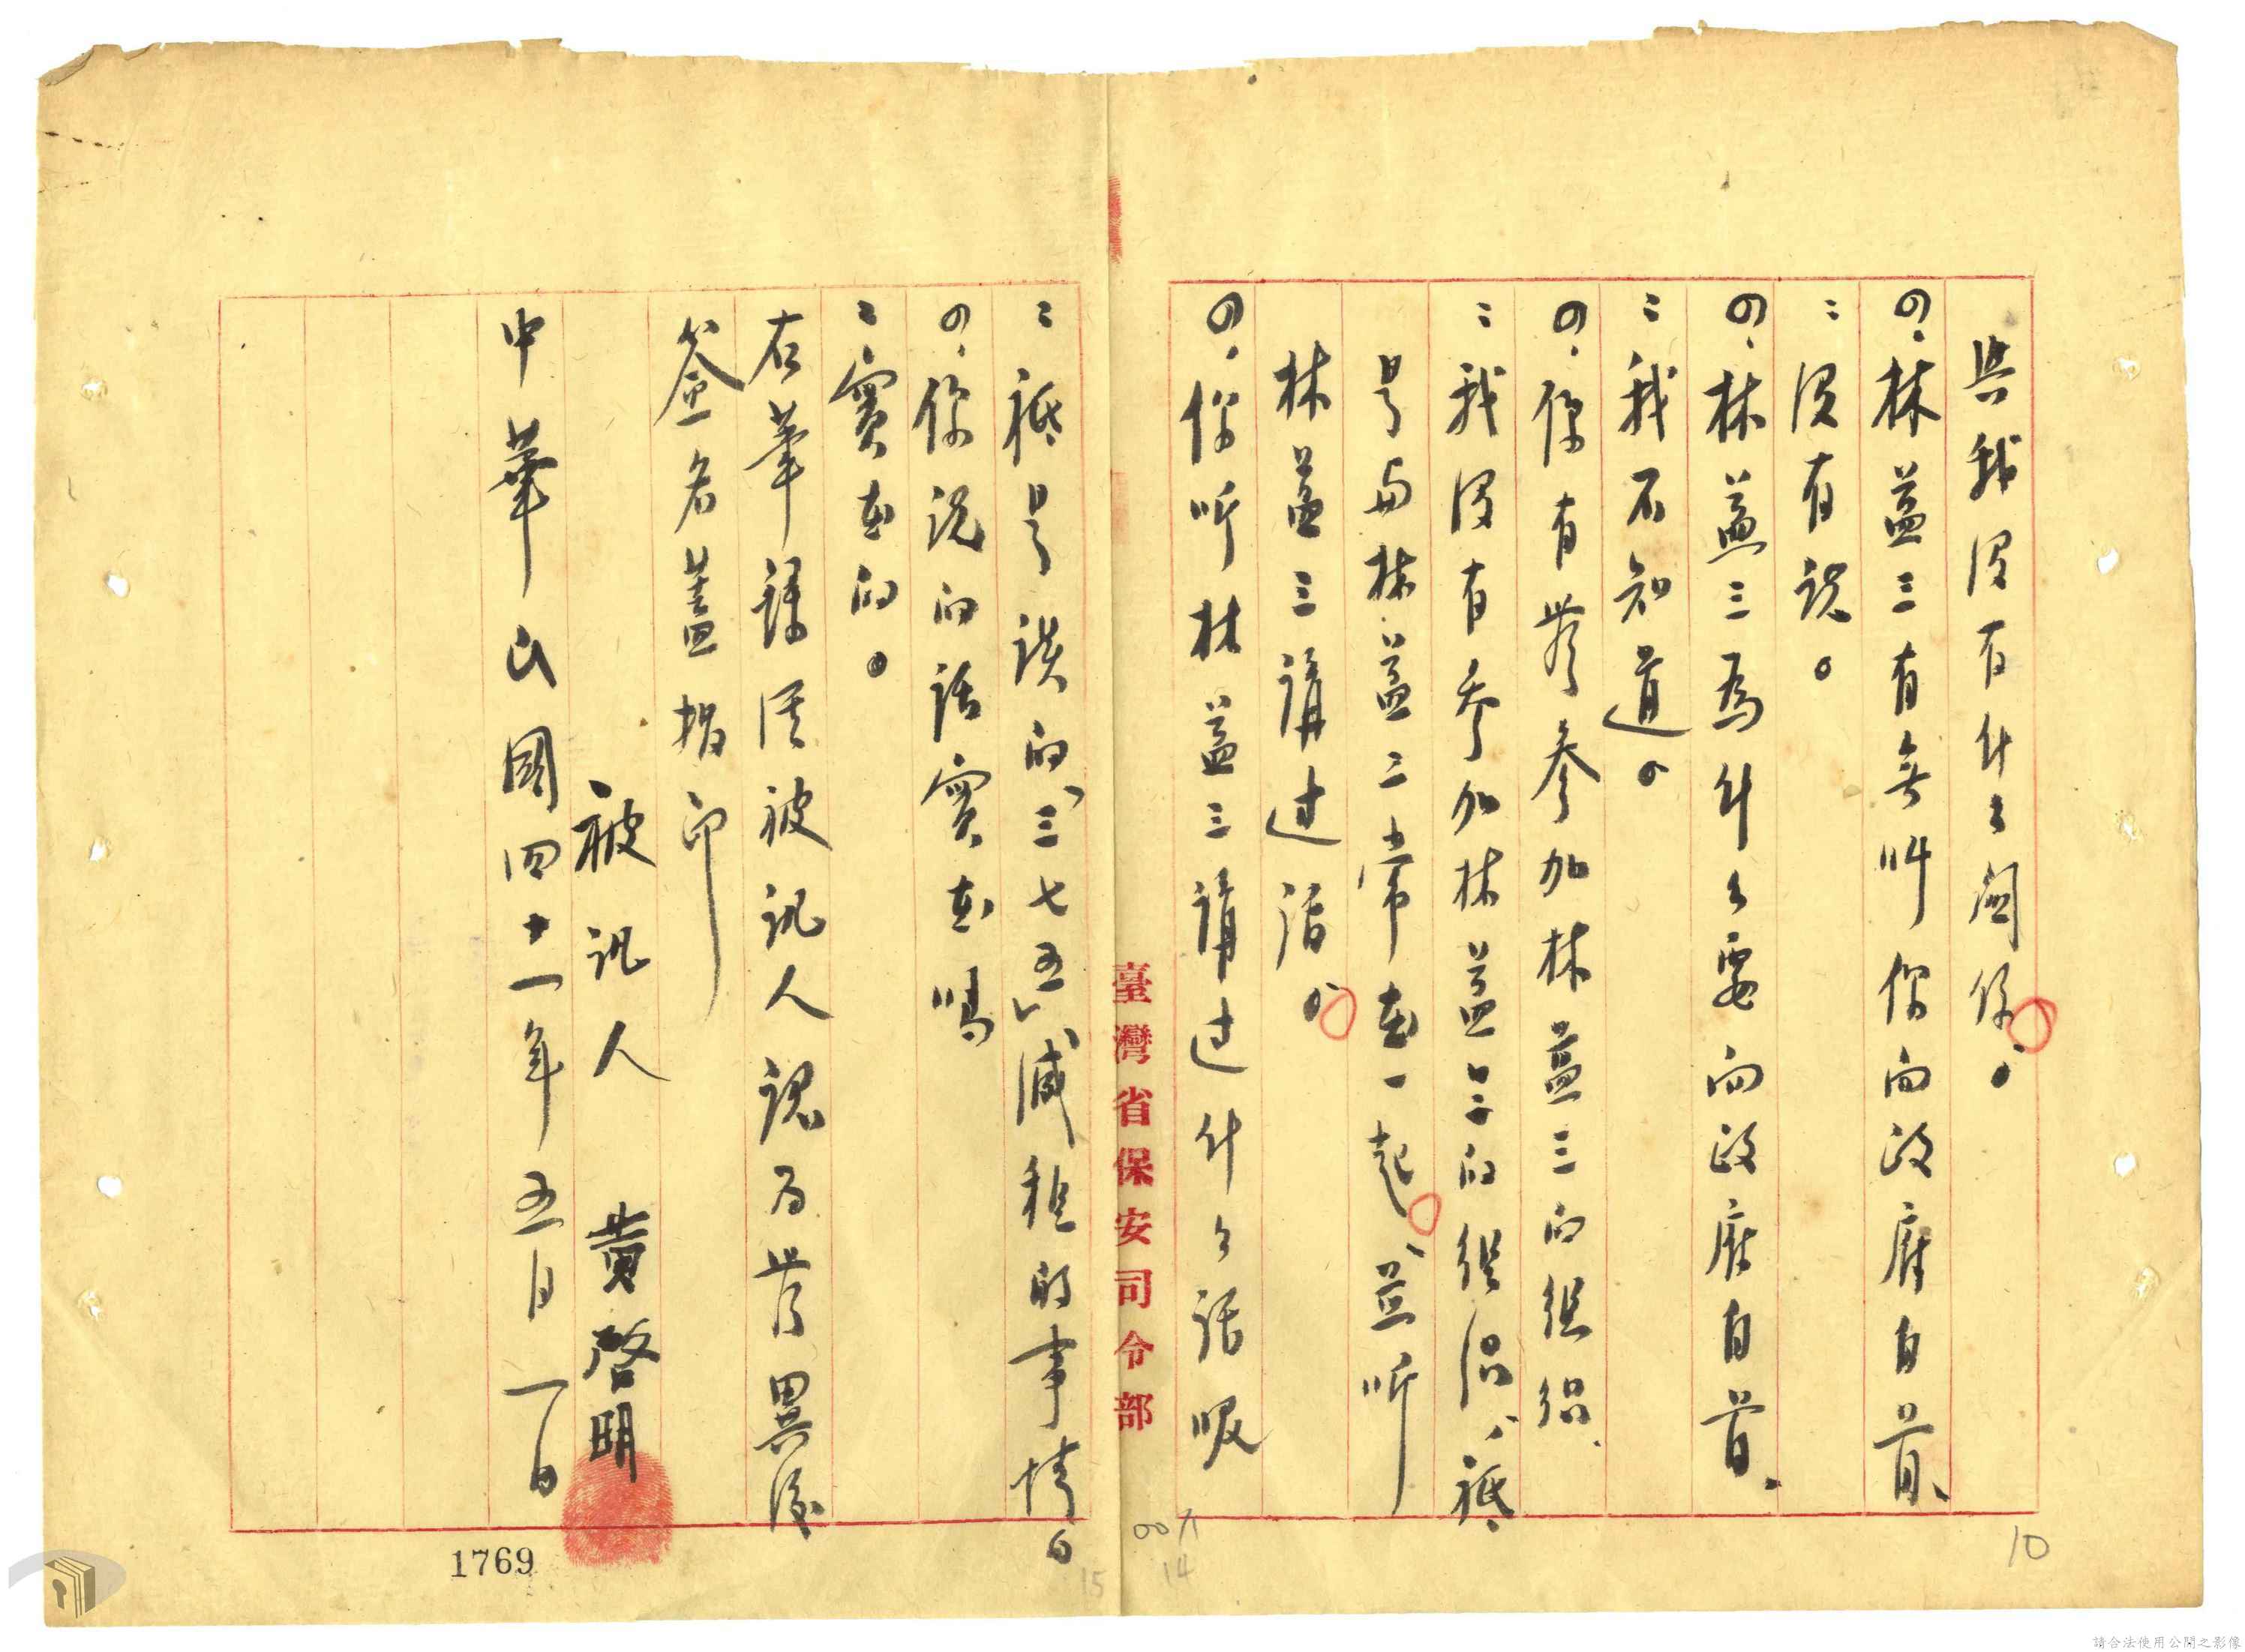 與我沒有什么關係。
問、林益三有無叫你向政府自首、
：沒有說。
問、林益三為什么要向政府自首、
：我不知道。
問、你有無參加林益三的組織、
：我沒有參加林益三的組織、祇
是與林益三常在一起、並听
林益三講过話。
問、你听林益三講过什么話呢
：祇是談的「三七五」減租的事情。
問、你說的話實在嗎
：實在的。
右筆錄經被訊人認為無異後
簽名蓋指印
被訊人 黃啓明
中華民國四十一年五月一日
臺灣省保安司令部
1769
10
14
15
請合法使用公開之影像